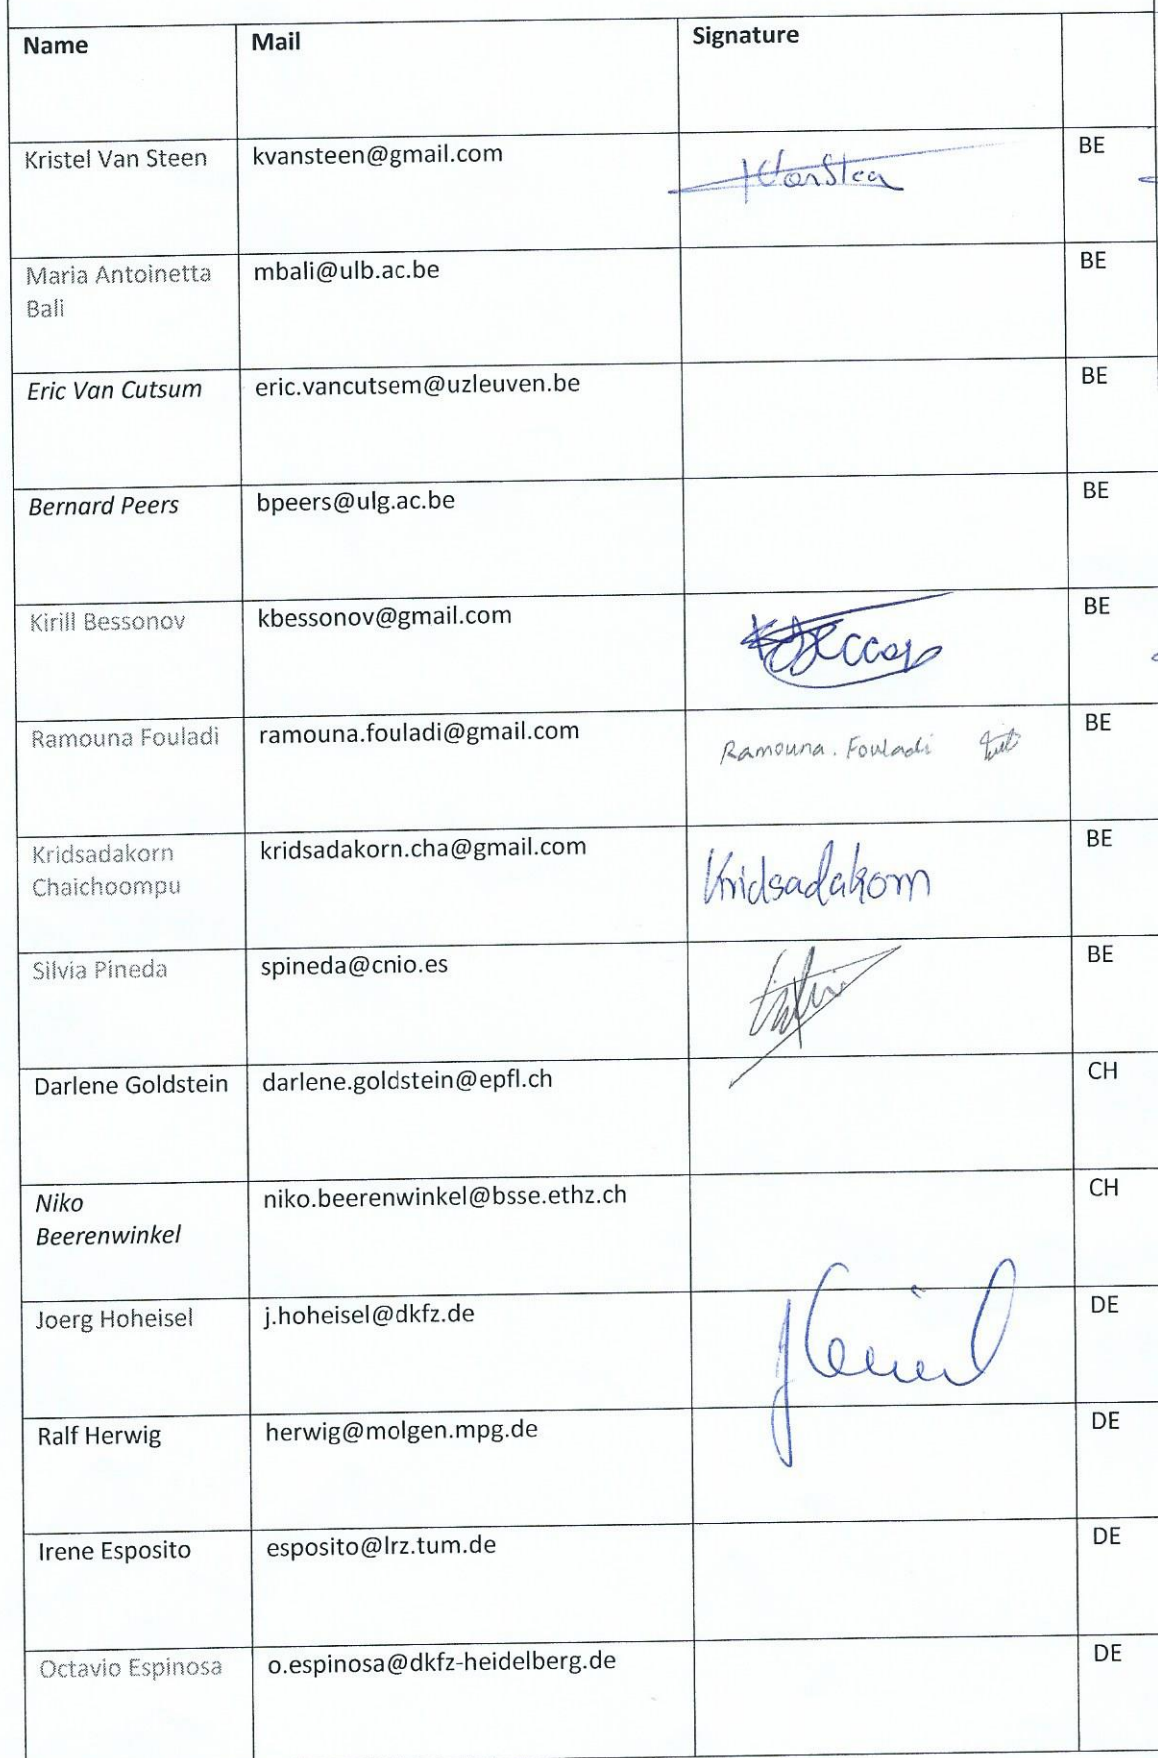 Name Mail Signature
Kristel Van Steen kvansteen@gmail.com BE
Maria Antoinetta mbali@ulb.ac.be BE
Bali
Eric Van Cutsum eric.vancutsem@uzleuven.be BE
Bernard Peers bpeers@ulg.ac.be BE
Kirill Bessonov kbessonov@gmail.com BE
Ramouna Fouladi ramouna.fouladi@gmail.com Ramouna. Fouladi BE
Kridsadakorn kridsadakorn.cha@gmail.com Kridsadakorn BE
Chaichoompu
Silvia Pineda spineda@cnio.es BE
Darlene Goldstein darlene.goldstein@epfl.ch CH
Niko niko.beerenwinkel@bsse.ethz.ch CH
Beerenwinkel
Joerg Hoheisel j.hoheisel@dkfz.de DE
Ralf Herwig herwig@molgen.mpg.de DE
Irene Esposito esposito@lrz.tum.de DE
Octavio Espinosa o.espinosa@dkfz-heidelberg.de DE